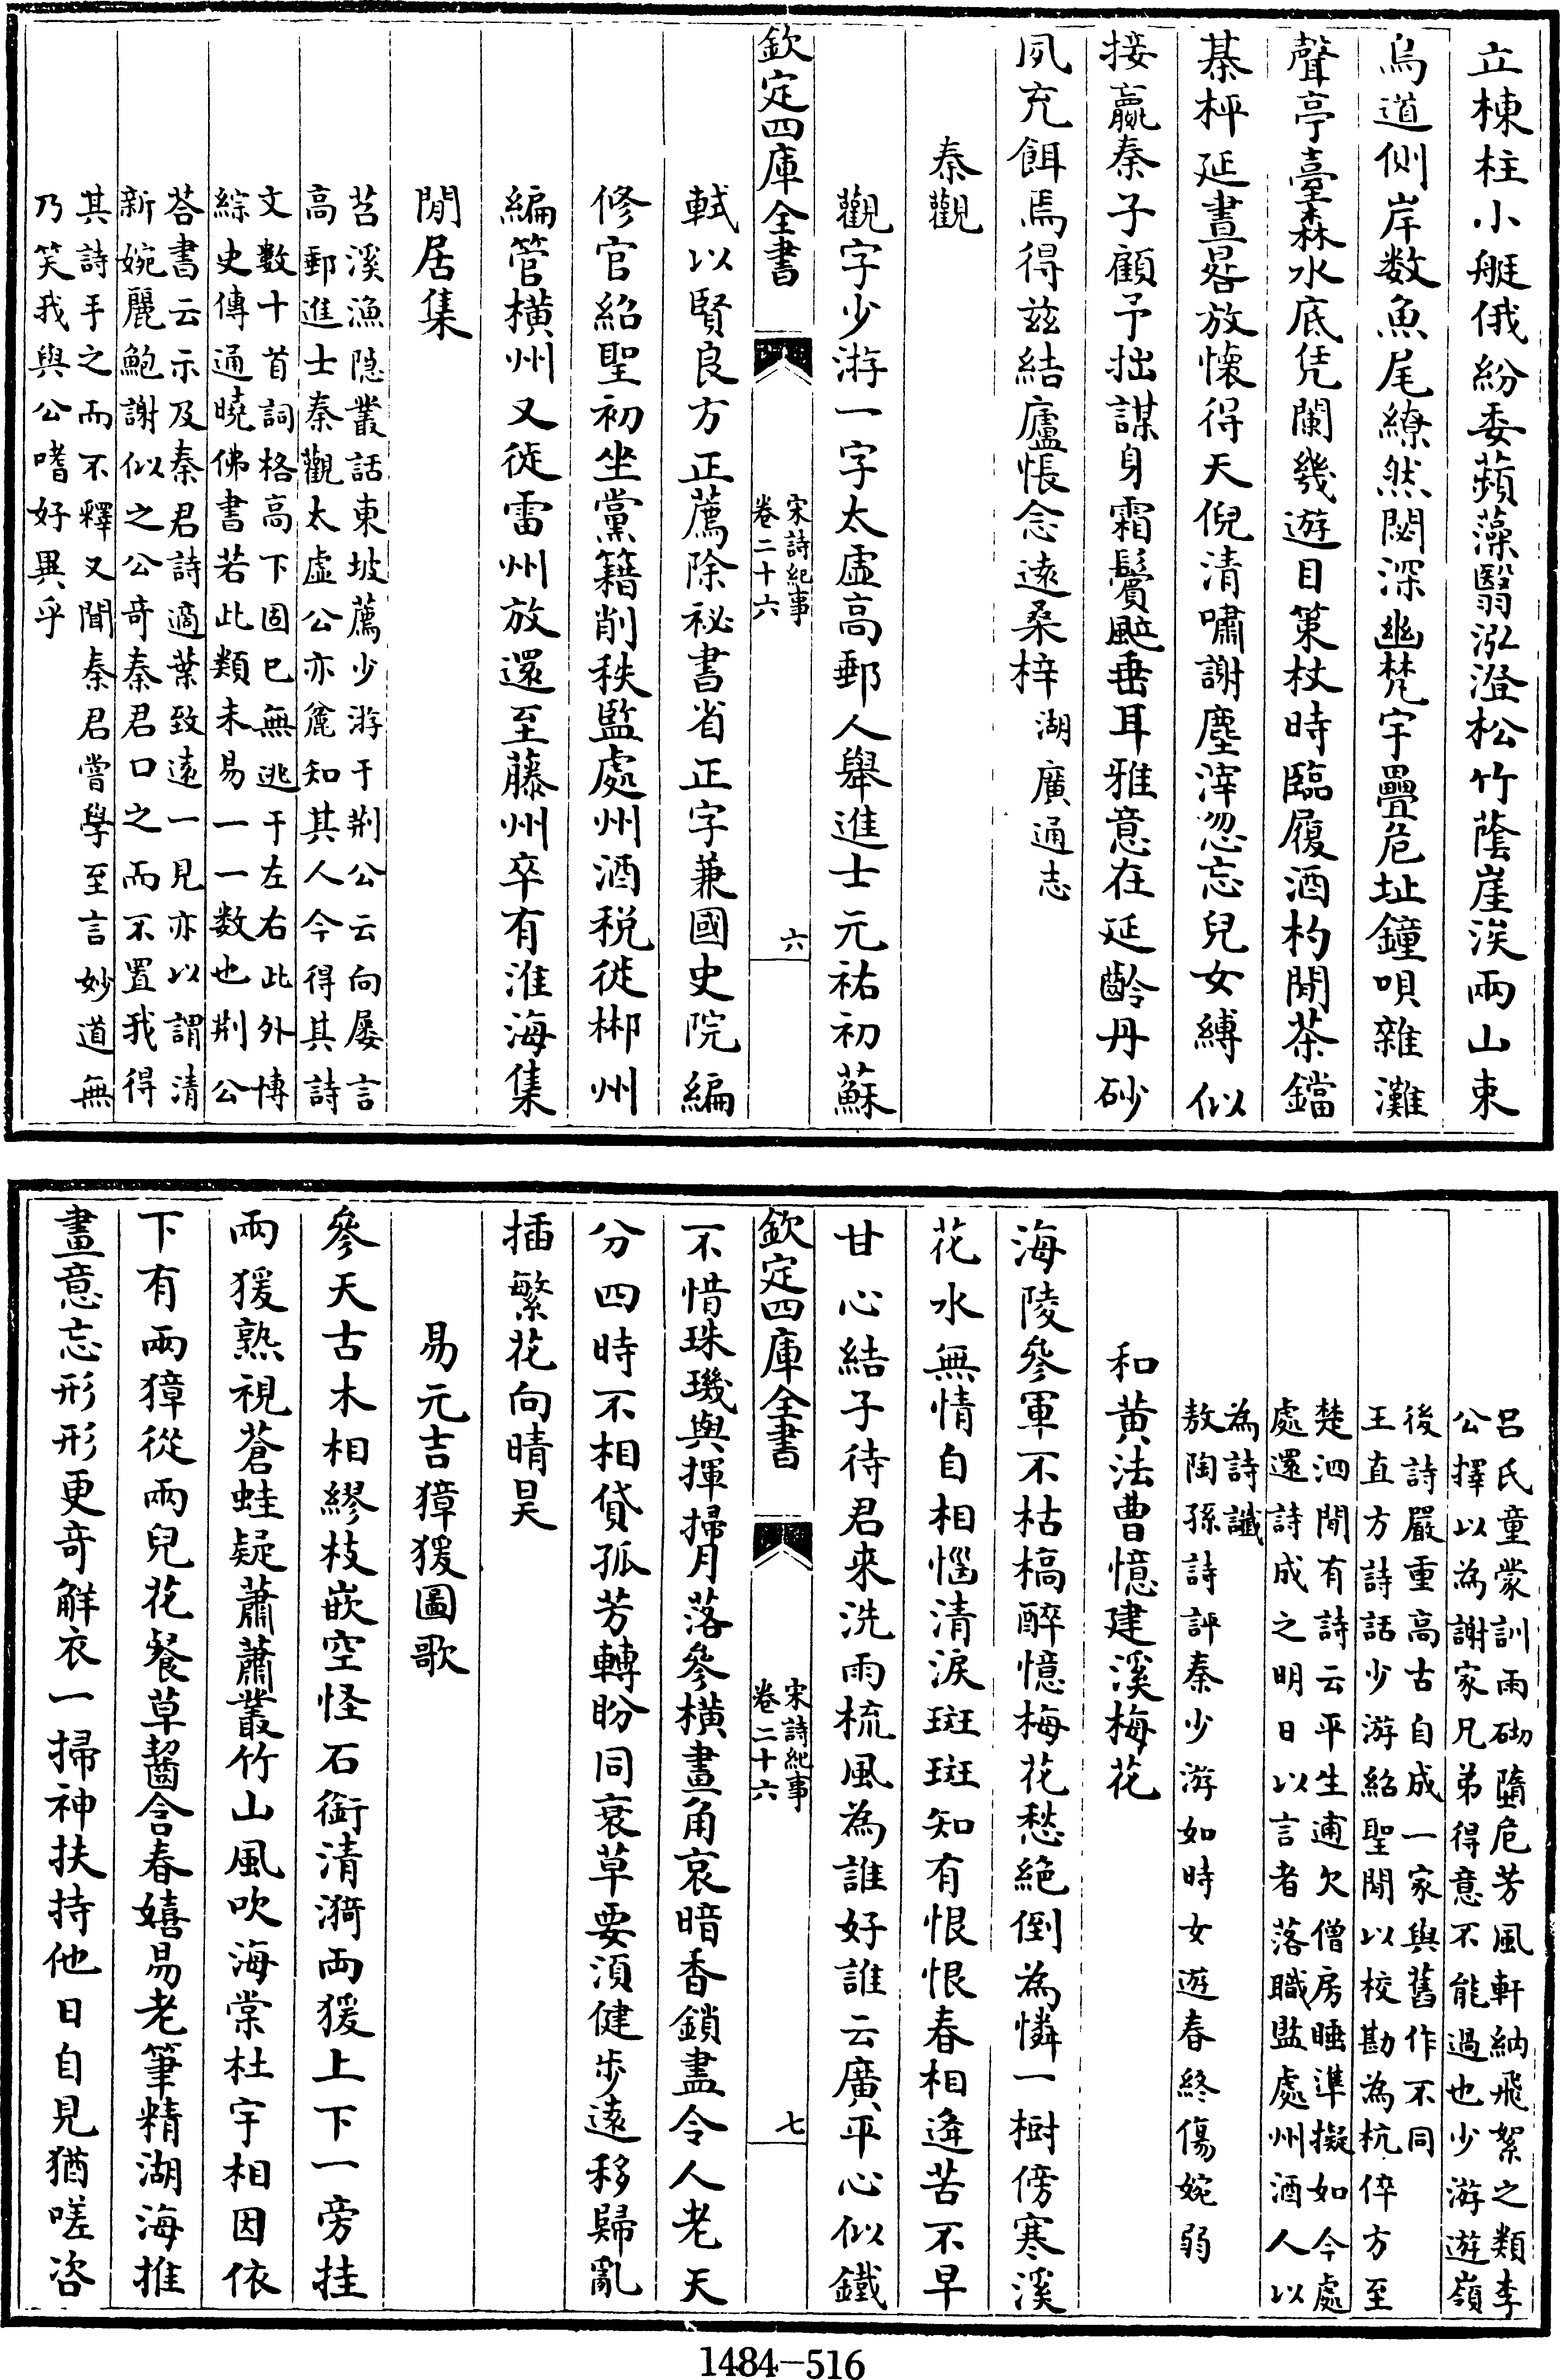 立棟柱小艇俄紛委蘋藻翳泓澄松竹蔭崖涘兩山束
烏道側岸数魚尾繚然閟深幽梵宇疊危址鐘唄雜灘
聲亭臺森水底凭闌幾遊目策杖時臨履酒杓閒茶鐺
棊枰延晝晷放懷得天倪清嘯謝塵滓忽忘兒女縛似
接嬴秦子顧予拙謀身霜鬢颯垂耳雅意在延齡丹砂
夙充餌焉得兹結廬悵念遠桑梓湖廣通志
秦觀
觀字少游一字太虚高郵人舉進士元祐初蘇
欽定四庫全書
宋詩紀事
卷二十六
六
軾以賢良方正薦除祕書省正字兼國史院編
修官紹聖初坐黨籍削秩監處州酒税徙郴州
編管横州又徙雷州放還至藤州卒有淮海集
閒居集
苕溪漁隐叢話東坡薦少游于荆公云向屢言
高郵進士秦觀太虚公亦麄知其人今得其詩
文數十首詞格高下固已無逃于左右此外博
綜史傳通曉佛書若此類未易一一数也荆公
荅書云示及秦君詩適葉致遠一見亦以謂清
新婉麗鮑謝似之公竒秦君口之而不置我得
其詩手之而不釋又聞秦君嘗學至言妙道無
乃笑我與公嗜好異乎
吕氏童蒙訓雨砌墮危芳風軒納飛絮之類李
公擇以為謝家兄弟得意不能過也少游遊嶺
後詩嚴重高古自成一家與舊作不同
王直方詩話少游紹聖間以校勘為杭倅方至
楚泗間有詩云平生逋欠僧房睡準擬如今處
處還詩成之明日以言者落職監處州酒人以
為詩讖
敖陶孫詩評秦少游如時女遊春終傷婉弱
和黄法曹憶建溪梅花
海陵參軍不枯槁醉憶梅花愁絶倒為憐一樹傍寒溪
花水無情自相惱清淚斑斑知有恨恨春相逢苦不早
甘心結子待君来洗雨梳風為誰好誰云廣平心似鐵
欽定四庫全書
宋詩紀事
卷二十六
七
不惜珠璣與揮掃月落參横畫角哀暗香鎖盡令人老天
分四時不相貸孤芳轉盼同衰草要須健步遠移歸亂
插繁花向晴昊
易元吉獐猨圖歌
參天古木相繆枝嵌空怪石銜清漪兩猨上下一旁挂
兩猨熟視蒼蛙疑蕭蕭叢竹山風吹海棠杜宇相因依
下有兩獐從兩兒花餐草齧含春嬉易老筆精湖海推
畫意忘形形更竒解衣一掃神扶持他日自見猶嗟咨
1484-516